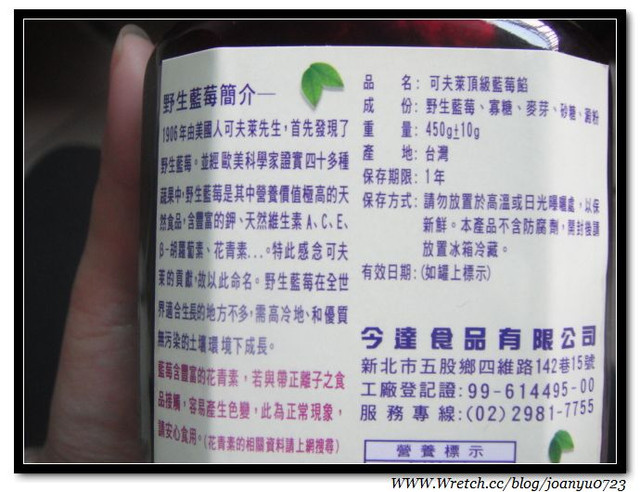 野生藍莓簡介—
1906年由美國人可夫萊先生，首先發現了
野生藍莓。並經歐美科學家證實四十多種
蔬果中，野生藍莓是其中營養價值極高的天
然食品，含豐富的鉀、天然維生素A、C、E、
β-胡蘿蔔素、花青素...。特此感念可夫
萊的貢獻，故以此命名。野生藍莓在全世
界適合生長的地方不多，需高冷地、和優質
無污染的土壤環境下成長。
藍莓含豐富的花青素，若與帶正離子之食
品接觸，容易產生色變，此為正常現象，
請安心食用。(花青素的相關資料請上網搜尋)
品　名：可夫萊頂級藍莓餡
成　份：野生藍莓、寡糖、麥芽、砂糖、澱粉
重　量：450g±10g
產　地：台灣
保存期限：1年
保存方式：請勿放置於高溫或日光曝曬處，以保
新鮮。本產品不含防腐劑，開封後請
放置冰箱冷藏。
有效日期：(如罐上標示)
今達食品有限公司
新北市五股鄉四維路142巷15號
工廠登記證：99-614495-00
服務專線：(02)2981-7755
營養標示
WWW.Wretch.cc/blog/joanyu0723